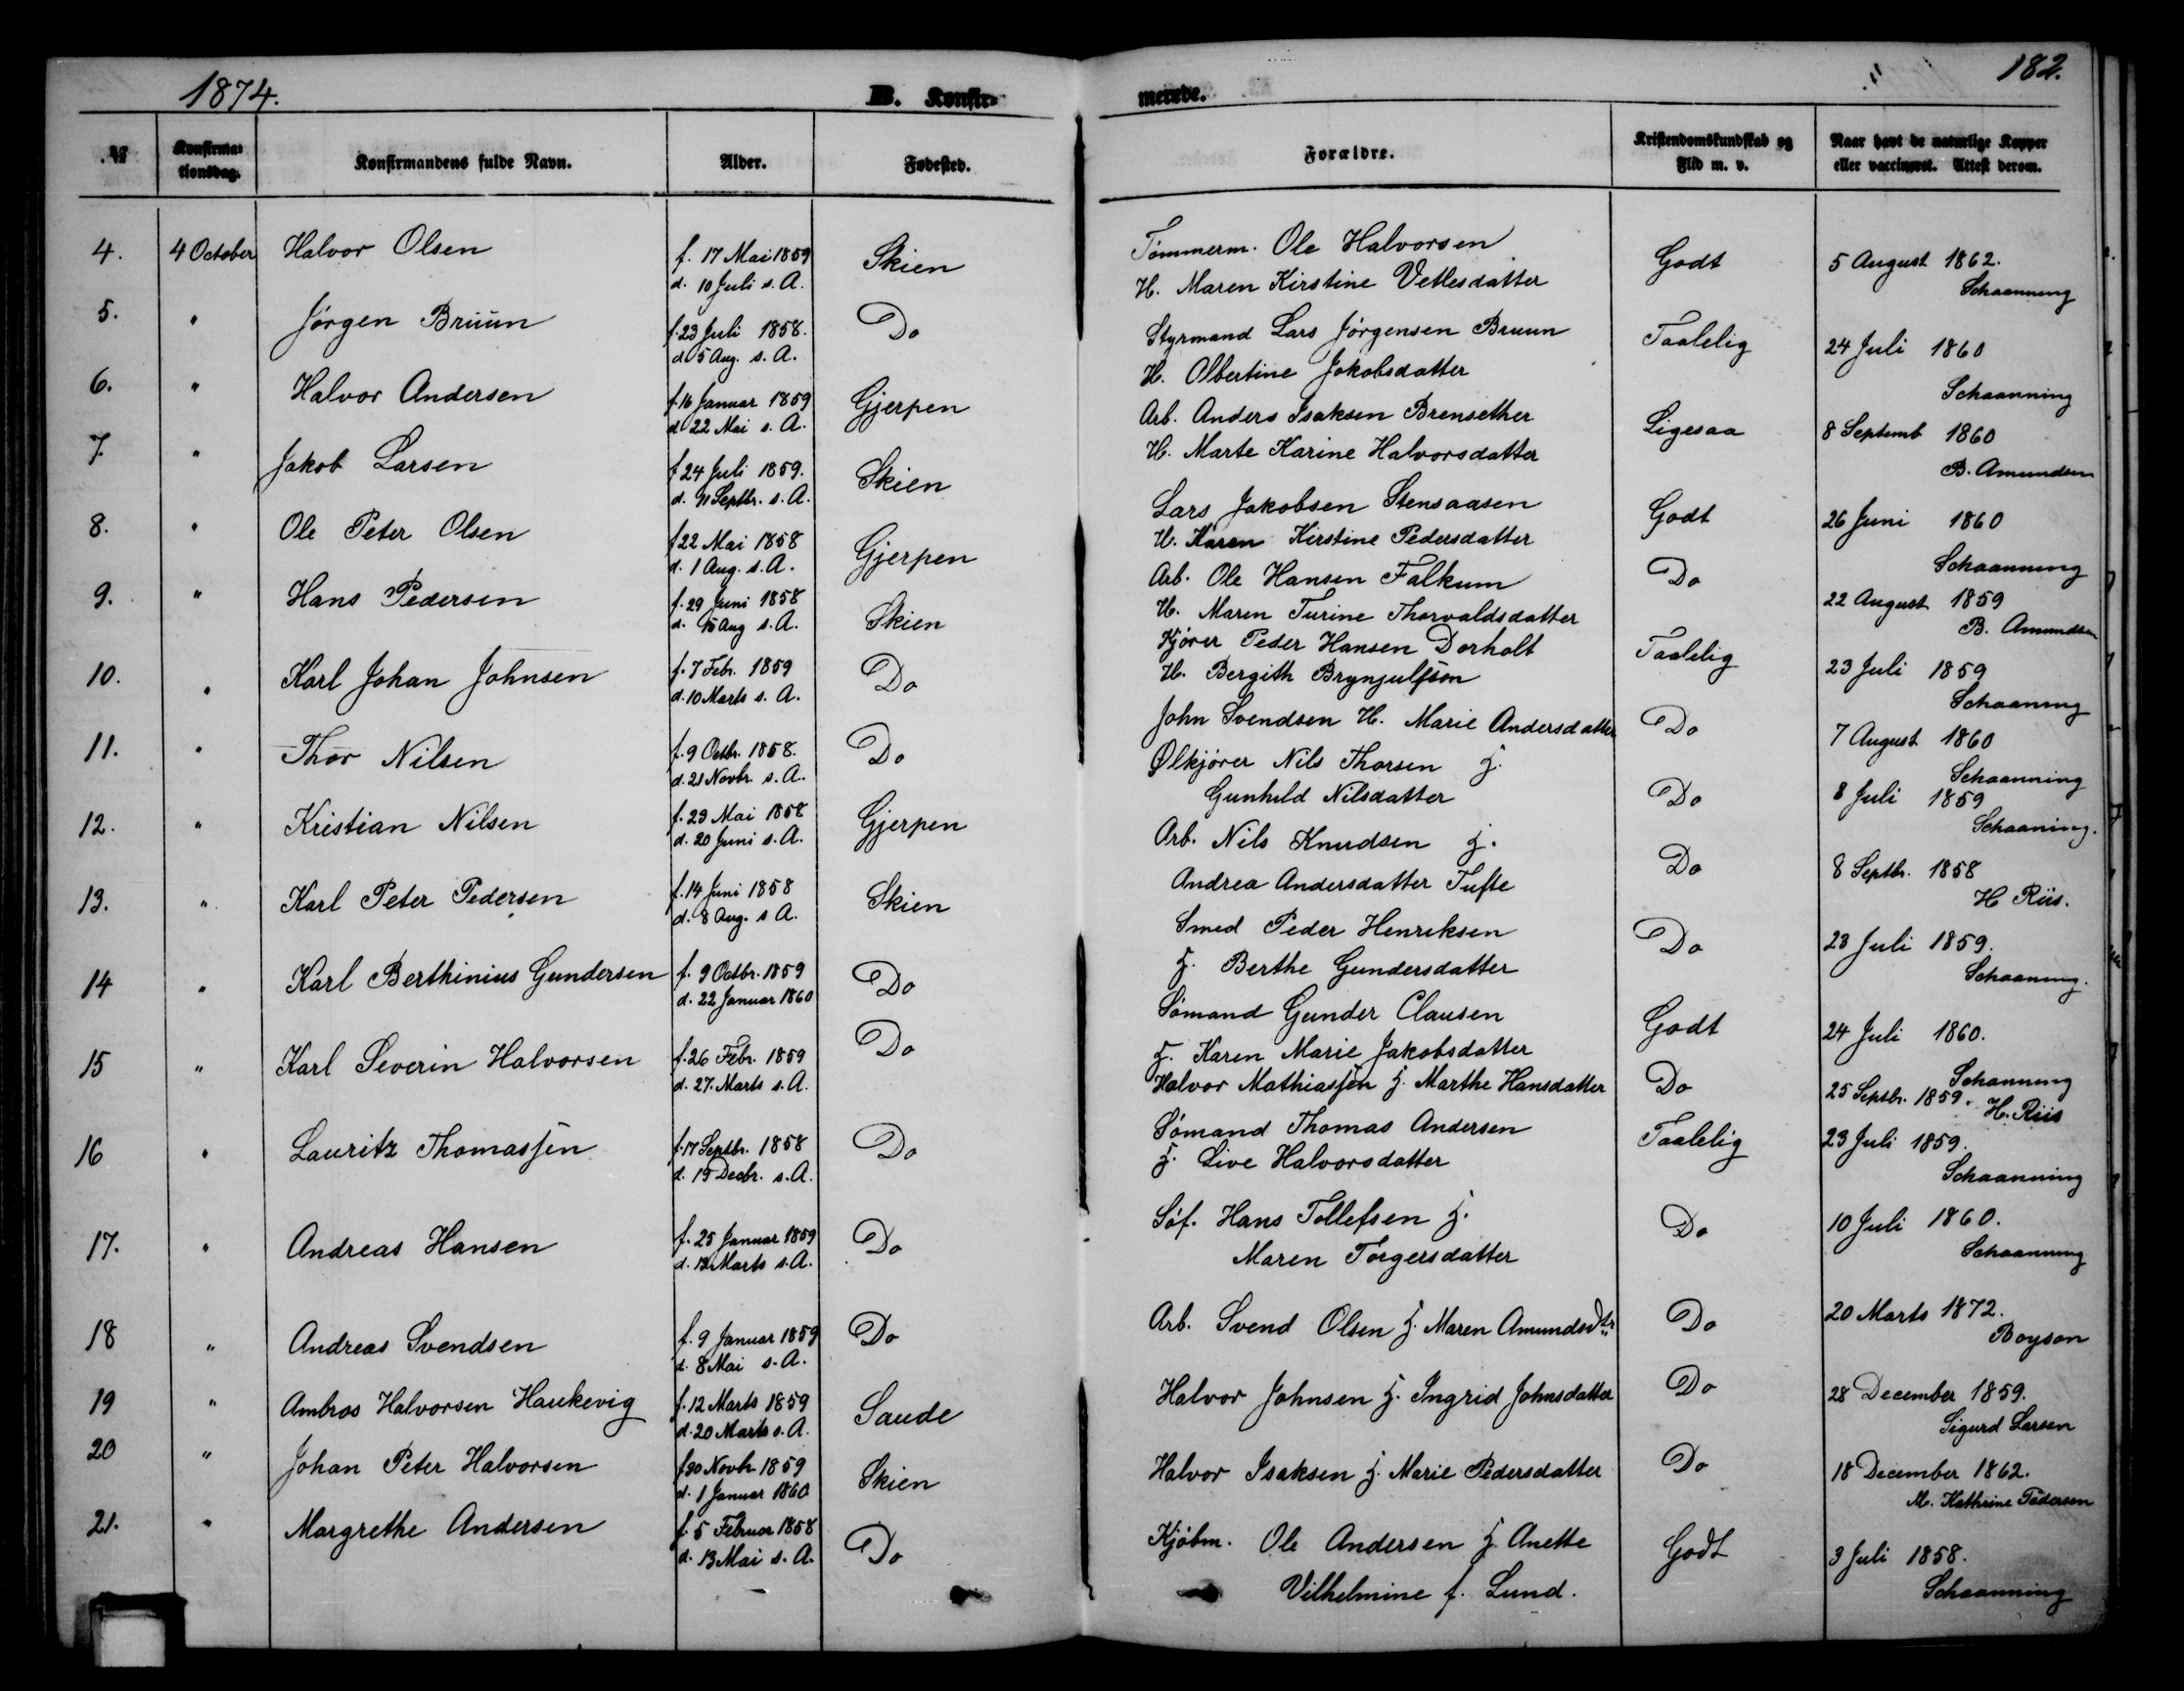 1874.
B. Konfir-
merede.
182.
№
Konfirma-
tionsdag.
Konfirmandens fulde Navn.
Alder.
Fødested.
Forældre.
Kristendomskundskab og
Flid m. v.
Naar havt de naturlige Kopper
eller vaccineret. Attest derom.
4. 4 October Halvor Olsen f. 17 Mai 1859 Skien Tømmerm. Ole Halvorsen Godt 5 August 1862.
d. 10 Juli s. A. H. Maren Kirstine Vetlesdatter Schaanning
5. " Jørgen Bruun f. 23 Juli 1858. Do Styrmand Lars Jørgensen Bruun Taalelig 24 Juli 1860
d. 5 Aug. s. A. H. Albertine Jakobsdatter Schaanning
6. " Halvor Andersen f. 16 Januar 1859 Gjerpen Arb. Anders Isaksen Brensether Ligesaa 8 Septemb 1860
d. 22 Mai s. A. H. Marte Karine Halvorsdatter B. Amundsen
7. " Jakob Larsen f. 24 Juli 1859. Skien Lars Jakobsen Stensaasen Godt 26 Juni 1860
d. 11 Septbr. s. A. H. Karen Kirstine Pedersdatter Schaanning
8. " Ole Peter Olsen f. 22 Mai 1858 Gjerpen Arb. Ole Hansen Falkum Do 22 August 1859
d. 1 Aug. s. A. H. Maren Turine Thorvaldsdatter B. Amundsen
9. " Hans Pedersen f. 29 Juni 1858 Skien Kjører Peder Hansen Dorholt Taalelig 23 Juli 1859
d. 15 Aug s. A. H. Bergith Brynjulfson Schaaning
10. " Karl Johan Johnsen f. 7 Febr. 1859 Do John Svendsen H. Marie Andersdatter Do 7 August 1860
d. 10 Marts s. A. Schaanning
11. " Thor Nilsen f. 9 Octbr. 1858. Do Ølkjører Nils Thorsen H. Do 8 Juli 1859
d. 21 Novbr. s. A. Gunhild Nilsdatter Schaaning.
12. " Kristian Nilsen f. 23 Mai 1858 Gjerpen Arb. Nils Knudsen H. Do 8 Septbr. 1858
d. 20 Juni s. A. Andrea Andersdatter Tufte H Riis.
13. " Karl Peter Pedersen f. 14 Juni 1858 Skien Smed Peder Henriksen Do 23 Juli 1859.
d. 8 Aug. s A. H. Berthe Gundersdatter Schaaning.
14 " Karl Berthinius Gundersen f. 9 Octbr. 1859 Do Sømand Gunder Clausen Godt 24 Juli 1860.
d. 22 Januar 1860 H. Karen Marie Jakobsdatter Schanning
15 " Karl Severin Halvorsen f. 26 Febr. 1859 Do Halvor Mathiassen H. Marthe Hansdatter Do 25 Septbr. 1859. H. Riis
d. 27. Marts s. A.
16 " Lauritz Thomassen f. 17 Septbr. 1858 Do Sømand Thomas Andersen Taalelig 23 Juli 1859.
d. 15 Decbr. s. A. H. Live Halvorsdatter Schaanning
17. " Andreas Hansen f. 25 Januar 1859 Do Søf. Hans Tollefsen H. Do 10 Juli 1860.
d. 13 Marts s. A. Maren Torgersdatter Schaanning
18 " Andreas Svendsen f. 9 Januar 1859 Do Arb. Svend Olsen H. Maren Amundsdtr Do 20 Marts 1872.
d. 8 Mai s. A. Boyson
19 " Ambros Halvorsen Haukevig f. 12 Marts 1859 Saude Halvor Johnsen H. Ingrid Johnsdatter Do 28 December 1859.
d. 20 Marts s. A. Sigurd Larsen
20 " Johan Peter Halvorsen f. 20 Novbr. 1859 Skien Halvor Isaksen H. Marie Pedersdatter Do 18 December 1862.
d. 1 Januar 1860 M. Kathrine Pedersen
21. " Margrethe Andersen f. 5 Februar 1858 Do Kjøbm. Ole Andersen H. Anette Godt 3 Juli 1858.
d. 13 Mai s. A. Vilhelmine f. Lund. Schaanning